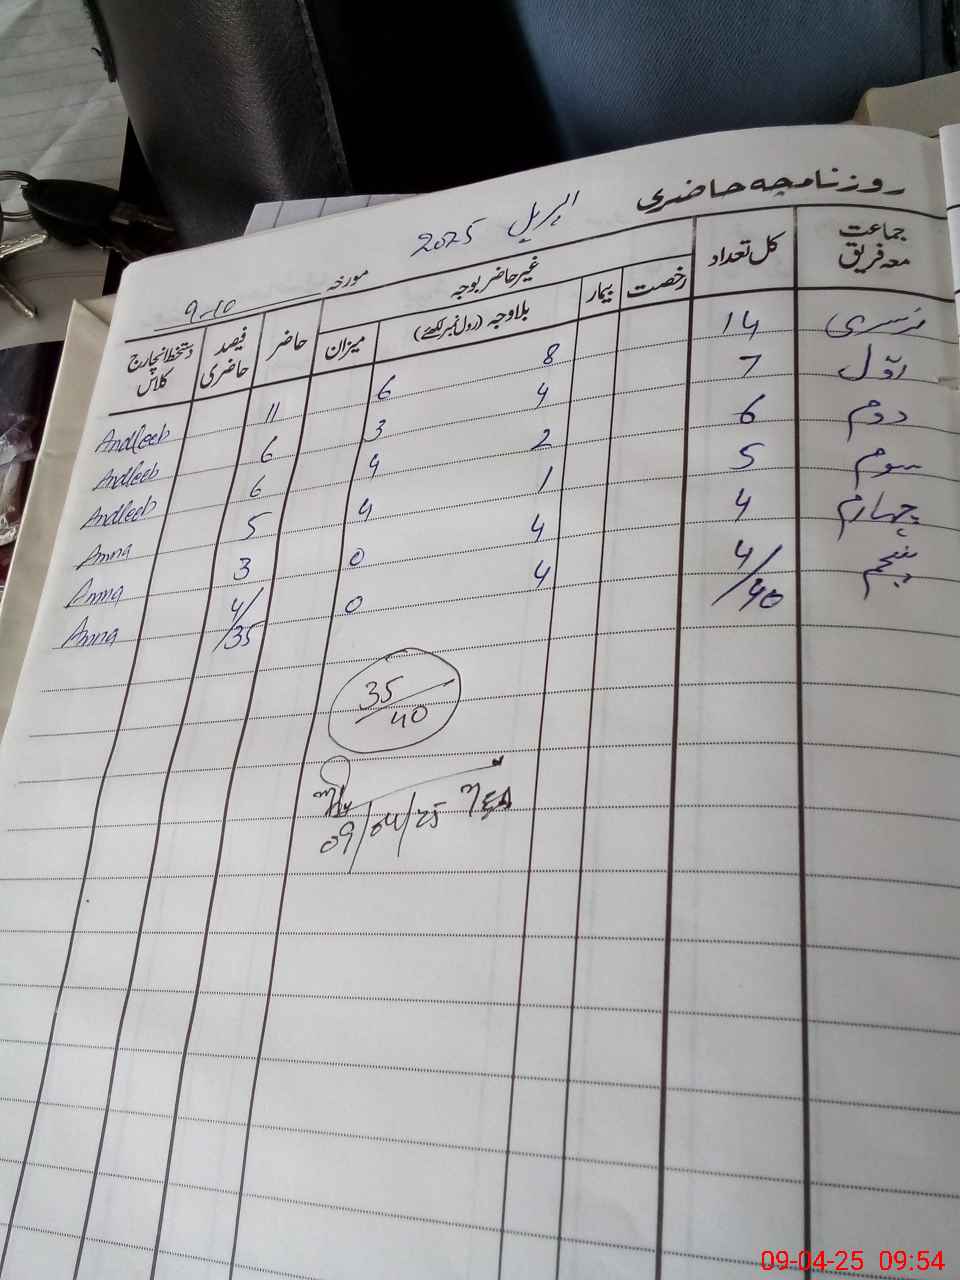 روزنامچہ حاضری
اپریل 2025
مورخہ 9-10
جماعت معہ فریق کل تعداد غیر حاضر بوجہ حاضر فیصد حاضری دستخط انچارج کلاس
رخصت بیمار بلاوجہ (رول نمبر لکھئے) میزان
نرسری 14 8 6 11 Andleeb
اوّل 7 4 3 6 Andleeb
دوم 6 2 4 6 Andleeb
سوم 5 1 4 5 Anna
چہارم 4 4 0 3 Anna
پنجم 4 4 0 4 Anna
/40 /35
35/40
09/04/25
09-04-25 09:54